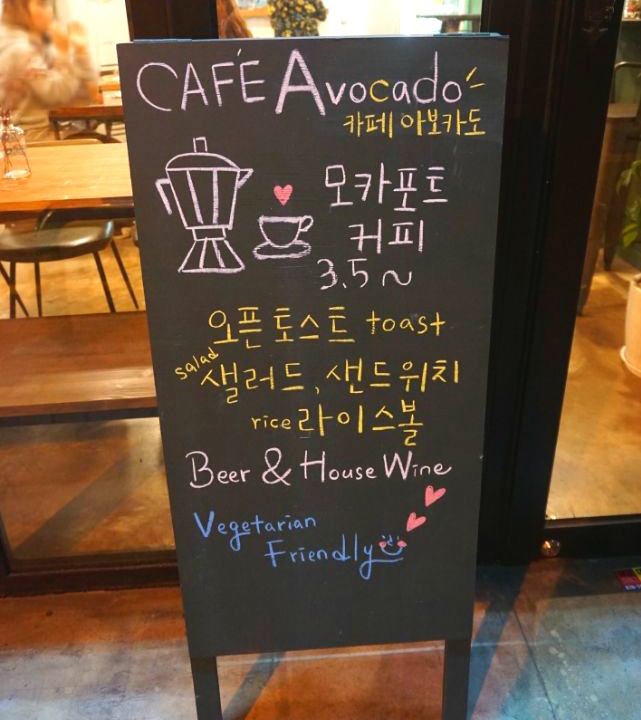 CAFÉ Avocado
카페 아보카도
모카포트
커피
3.5~
오픈토스트 toast
salad
샐러드, 샌드위치
rice 라이스볼
Beer & House Wine
Vegetarian
Friendly